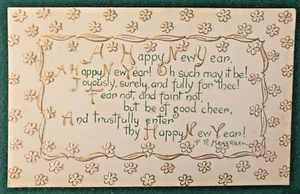 A Happy New Year.
A Happy New Year! Oh such may it be!
Joyously, surely, and fully for thee!
Fear not, and faint not,
but be of good cheer,
And trustfully enter
thy Happy New Year!
F. R. Havergal.